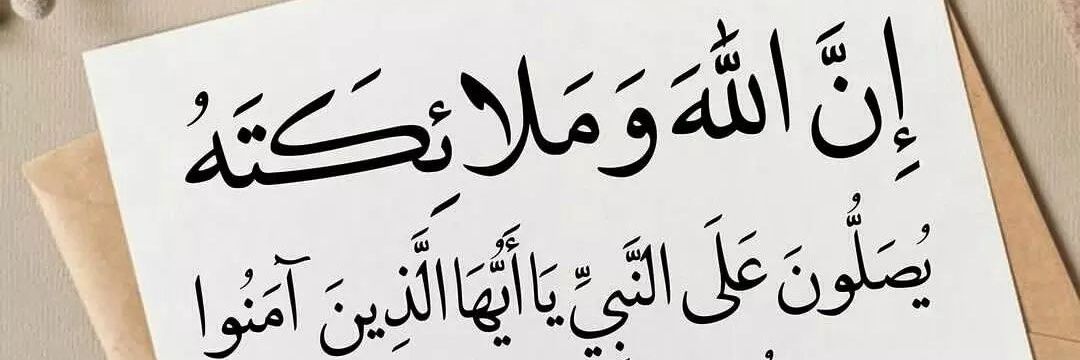 إِنَّ اللَّهَ وَمَلَائِكَتَهُ
يُصَلُّونَ عَلَى النَّبِيِّ يَا أَيُّهَا الَّذِينَ آمَنُوا